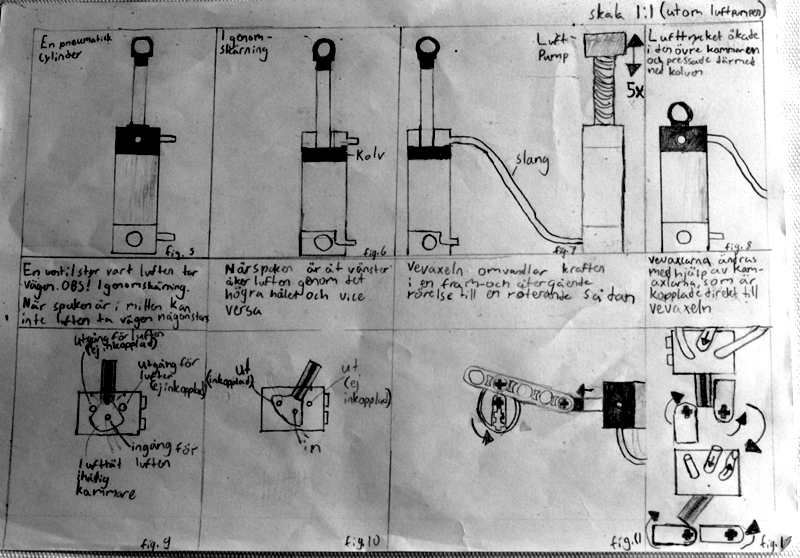 skala 1:1 (utom luftpumpen)
En pneumatisk
cylinder
fig. 5
I genom-
skärning
Kolv
fig. 6
Luft-
Pump
5x
slang
fig. 7
Lufttrycket ökade
i den övre kammaren
och pressade därmed
ned kolven
fig. 8
En ventil styr vart luften tar
vägen. OBS! I genomskärning.
När spaken är i mitten kan
inte luften ta vägen någonstans
utgång för luften
(ej inkopplad)
utgång för
luften
(ej inkopplad)
ingång för
luften
lufttät
ihålig
kammare
fig. 9
När spaken är åt vänster
åker luften genom det
högra hålet och vice
versa
ut
(inkopplad)
ut
(ej
inkopplad)
in
fig. 10
Vevaxeln omvandlar kraften
i en fram- och återgående
rörelse till en roterande sådan
fig. 11
Vevaxlarna ändras
med hjälp av kam-
axlarna, som är
kopplade direkt till
vevaxeln